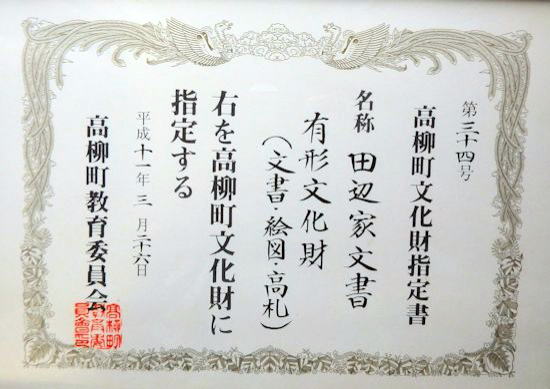 第三十四号
高柳町文化財指定書
名称 田辺家文書
有形文化財
(文書・絵図・高札)
右を高柳町文化財に
指定する
平成十一年三月二十六日
高柳町教育委員会